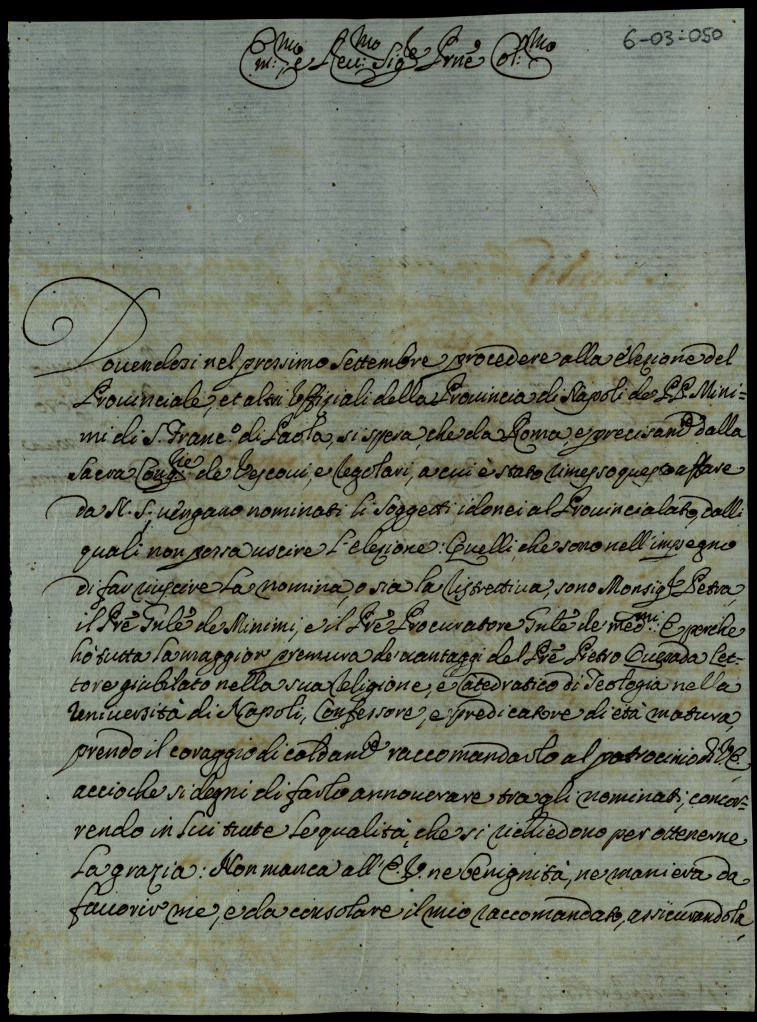 6-03-050
Em:mo e Reu:mo Sig:re Prnē Col:mo
Douendosi nel prossimo Settembre procedere alla elezione del
Prouinciale, et altri Vffiziali della Prouincia di Napoli de PP. Mini-
mi di S. Franc.o di Paola, si spera, che da Roma, e precisam.te dalla
Sacra Cong.ne de Vescoui, e Regolari, a cui è stato rimesso questo affare
da N. S. uengano nominati li Soggetti idonei al Prouincialato, dalli
quali non possa uscire l'elezione: Quelli, che sono nell'impegno
di far riuscire la nomina, o sia la ristrettiua, sono Monsig.r Petra,
il Prē Gnlē de Minimi, e il Prē Procuratore Gnlē de med.mi: E perche
hò tutta la maggior premura de uantaggi del Prē Pietro Quesada Let-
tore giubilato nella sua Religione, e Catedratico di Teologia nella
Vniuersità di Napoli, Confessore, e predicatore di età matura,
prendo il coraggio di caldam.te raccomandarlo al patrocinio di V. E.
accioche si degni di farlo annouerare tra gli nominati, concor-
rendo in lui tutte le qualità, che si richiedono per ottenerne
la grazia: Non manca all'E. V. ne benignità, ne maniera da
fauorir me, e da consolare il mio raccomandato, assicurandola,